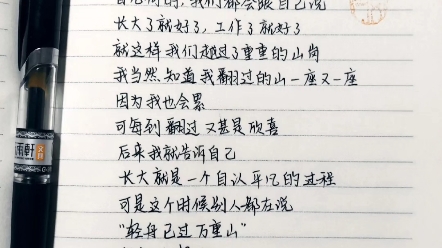 我们都会跟自己说
长大了就好了,工作了就好了
就这样我们越过了重重的山岗
我当然知道我翻过的山一座又一座
因为我也会累
可每到翻过又甚是欣喜
后来我就告诉自己
长大就是一个自认平凡的过程
可是这个时候别人都在说
"轻舟已过万重山"